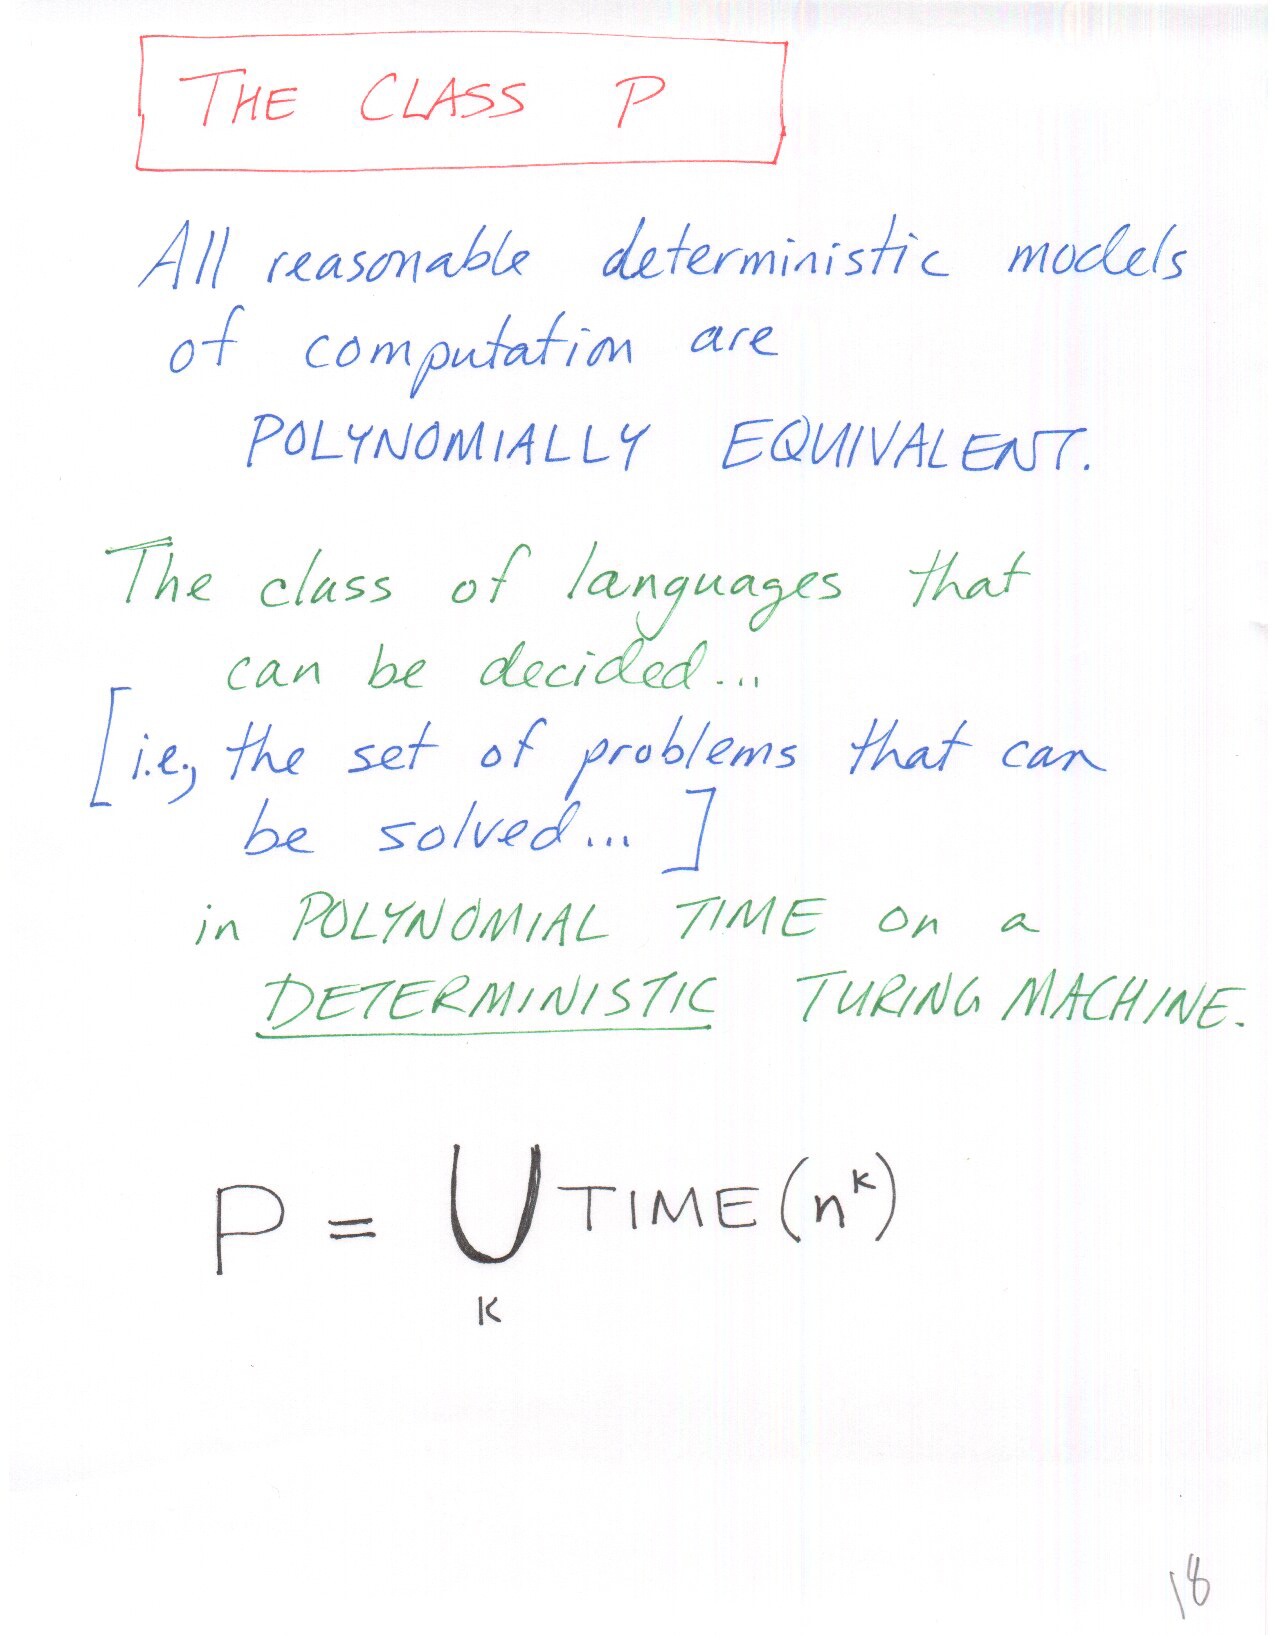 THE CLASS P
All reasonable deterministic models
of computation are
POLYNOMIALLY EQUIVALENT.
The class of languages that
can be decided...
[i.e., the set of problems that can
be solved...]
in POLYNOMIAL TIME on a
DETERMINISTIC TURING MACHINE.
P = ⋃ TIME(n^k)
k
18